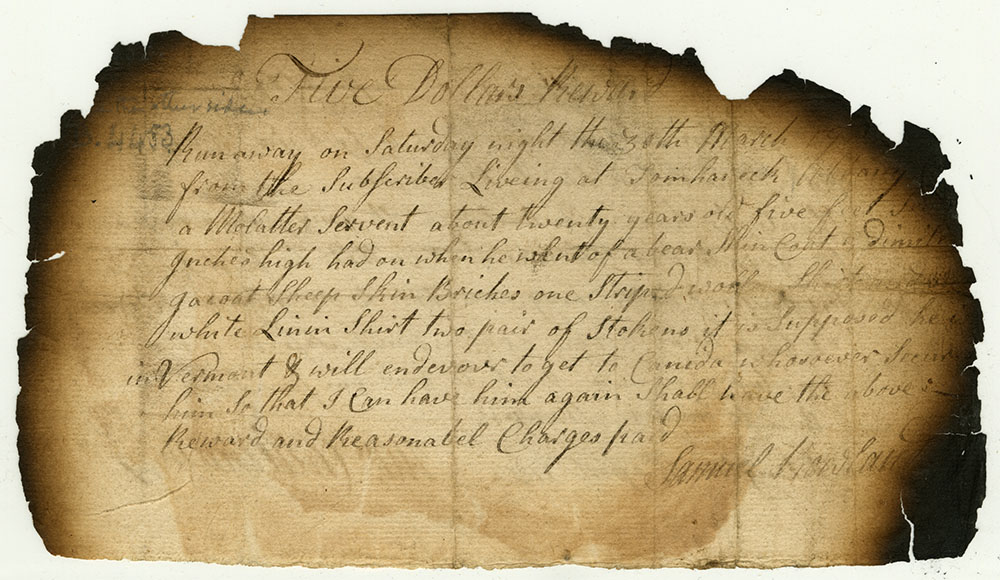 Five Dollars Reward
4483
Runaway on Saturday night the 30th March
from the Subscriber Liveing at Somhaneck Albany
a Molatter Servent about twenty years old five feet
Inches high had on when he went of a bear Skin Coat
Sheep Skin Briches one Striped Shirt
white Linin Shirt two pair of Stokens it is Supposed he
in Vermont & will endevour to get to Canada whosoever
him So that I Can have him again Shall have the above
Reward and Reasonatel Charges paid
Samuel